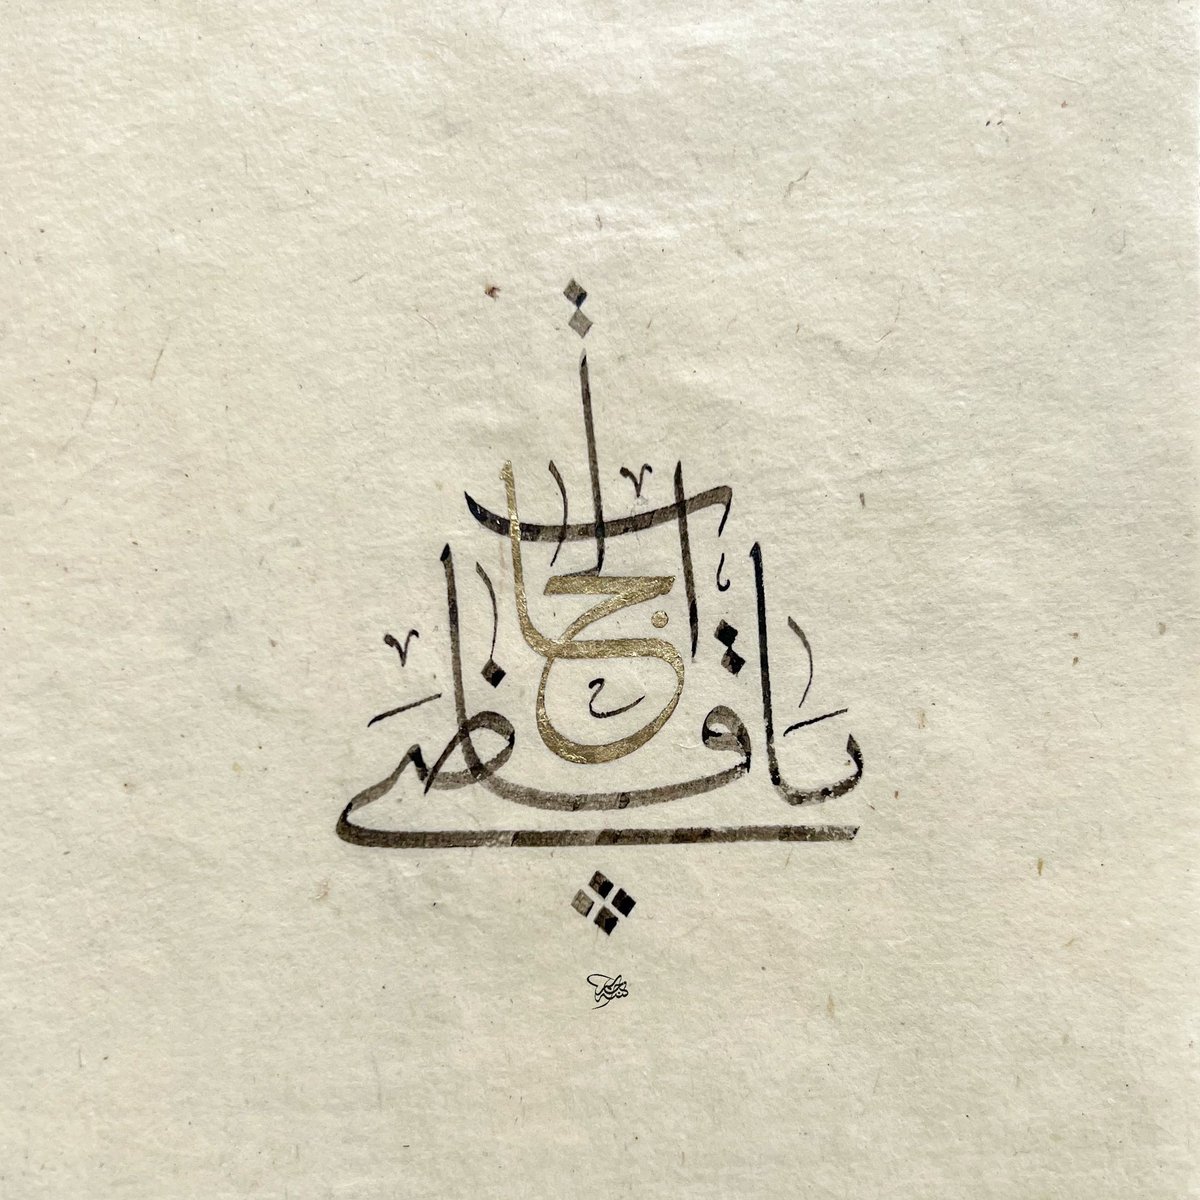 يا قاضي الحاجات